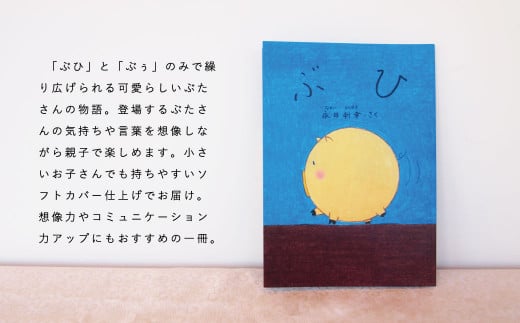 「ぶひ」と「ぶぅ」のみで繰
り広げられる可愛らしいぶた
さんの物語。登場するぶたさ
んの気持ちや言葉を想像しな
がら親子で楽しめます。小さ
いお子さんでも持ちやすいソ
フトカバー仕上げでお届け。
想像力やコミュニケーション
力アップにもおすすめの一冊。
ぶひ
さく